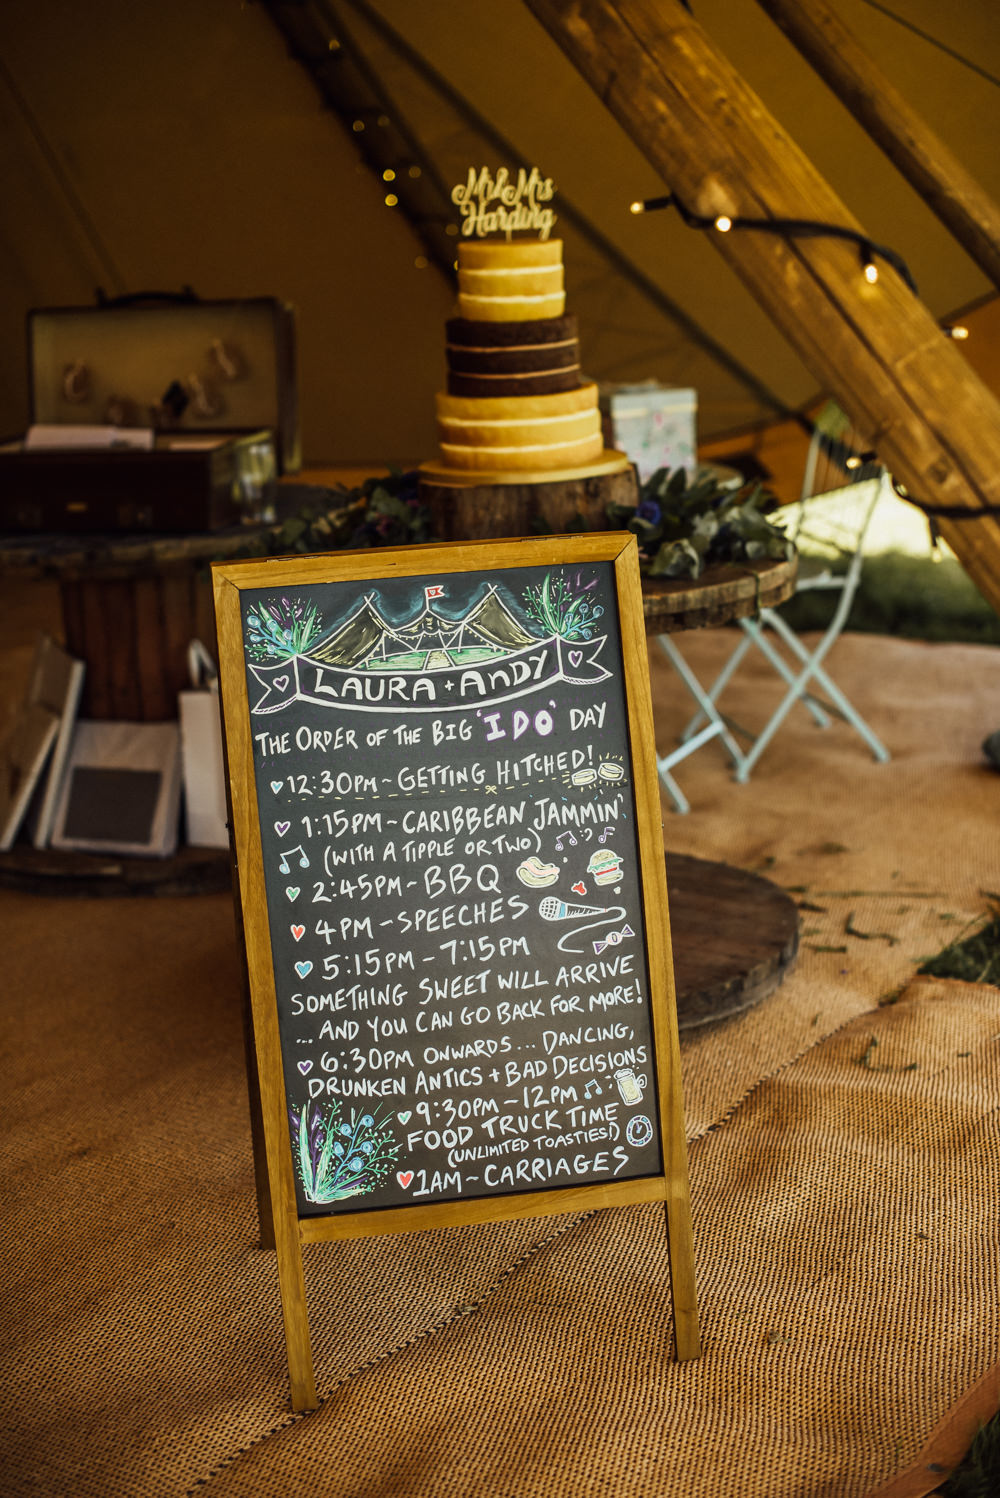 Mr & Mrs
Harding
LAURA + ANDY
THE ORDER OF THE BIG 'I DO' DAY
12:30PM ~ GETTING HITCHED!
1:15PM ~ CARIBBEAN JAMMIN'
(WITH A TIPPLE OR TWO)
2:45PM ~ BBQ
4PM ~ SPEECHES
5:15PM - 7:15PM
SOMETHING SWEET WILL ARRIVE
... AND YOU CAN GO BACK FOR MORE!
6:30PM ONWARDS... DANCING,
DRUNKEN ANTICS + BAD DECISIONS
9:30PM - 12PM
FOOD TRUCK TIME
(UNLIMITED TOASTIES!)
1AM ~ CARRIAGES